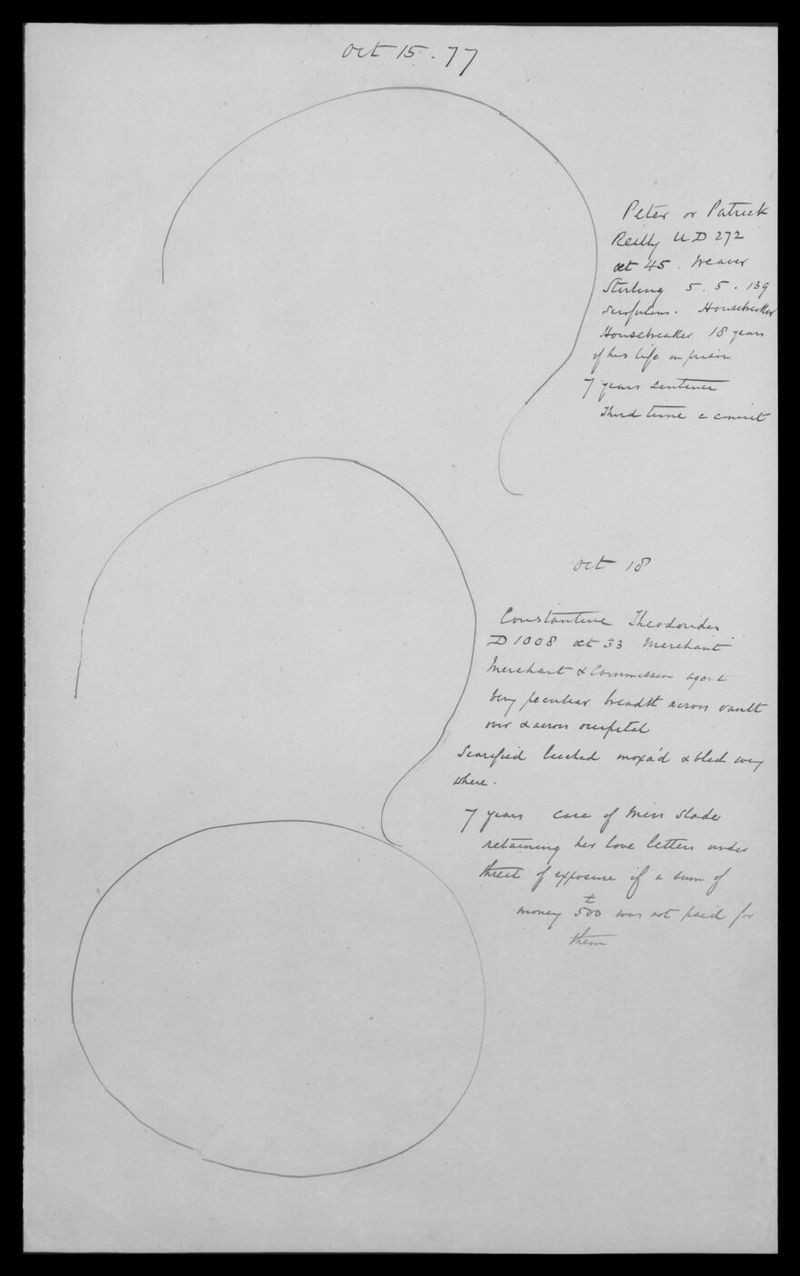 Oct 15. 77
Peter or Patrick
Reilly U D 272
aet 45. Weaver
Stirling 5. 5. 139
Housebreaker
Housebreaker 18 years
of his life in prison
7 years sentence
Third time a convict
Oct 18
Constantine Theodorides
D 1008 aet 33 Merchant
Merchant & Commission agent
Very peculiar breadth across vault
over & across occipital
Scarified leeched moxa'd & bled every
where.
7 years case of Miss Slade
retaining her love letters under
threat of exposure if a sum of
money £500 was not paid for
them